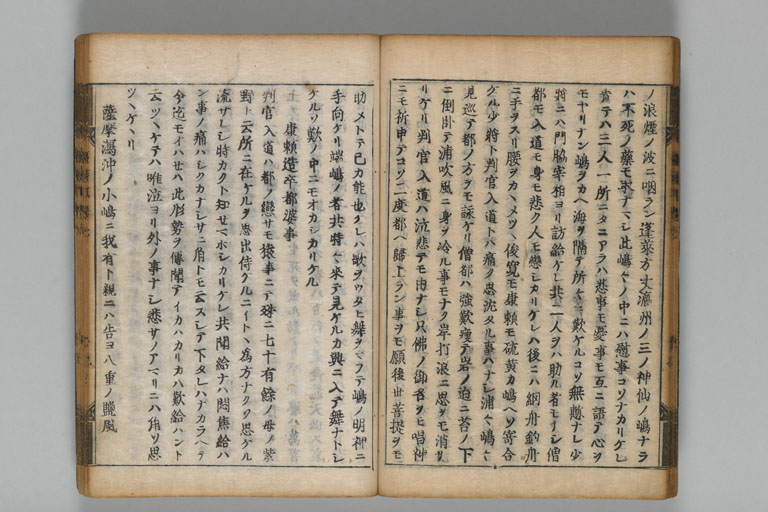 ノ浪煙ノ波ニ咽ラン蓬萊方丈瀛州ノ三ノ神仙ノ嶋ナラ
ハ不死ノ薬モ取ナマシ此嶋々ノ中ニハ慰事コソナカリケレ
責テハ三人一所ニタニアラハ悲事モ憂事モ互ニ語テ心ヲ
モヤリナン嶋ヲカヘ海ヲ隔テ所々ニ歎ケルコソ無慙ナレ少
将ニハ門脇宰相ヨリ訪給ケレ共二人ヲハ助ル者モナシ僧
都モ入道モ身モ悲ク人モ戀シカリケレハ後ニハ網舟釣舟
ニ手ヲスリ腰ヲカヽメツヽ俊寛モ康頼モ硫黄カ嶋ヘソ寄合
ケル少将ト判官入道トハ痛ク思沈タル事ハナシ浦々嶋々
見巡テ都ノ方ヲモ詠ケリ僧都ハ強歎疲テ岩ノ迫ニ苔ノ下
ニ倒臥テ浦吹風ニ身ヲ冷ル事モナク岸打浪ニ思ヲモ消サ
リケリ判官入道ハ泣悲テモ由ナシ只佛ノ御名ヲモ唱神
ニモ祈申テコソ二度都ヘ歸上ラン事ヲモ願後世菩提ヲモ
助メトテ己カ能也ケレハ歌ヲウタヒ舞ヲマフテ嶋ノ明神ニ
手向ケリ端嶋ノ者共時々来テ見ケルカ興ニ入テ舞ナトシ
ケルソ歎ノ中ニモオカシカリケル
康頼造卒都婆事
判官入道ハ都ノ戀サモ猿事ニテ殊ニ七十有餘ノ母ノ紫
野ト云所ニ在ケルヲ思出侍ケルニイトヽ為方ナクソ思ケル
流サレシ時カクト知セマホシカリケレ共聞給ナハ悶焦給ハ
ン事ノ痛ハシクカナシサニ角トモ云スシテ下タレハナカラヘテ
今迄モイハセハ此形勢ヲ傳聞テイカハカリカハ歎給ハント
云ツヽケテハ唯泣ヨリ外ノ事ナシ悲サノアマリニハ角ソ思
ツヽケケリ
薩摩潟沖ノ小嶋ニ我有ト親ニハ告ヨ八重ノ鹽風